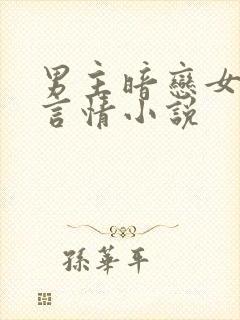 男主暗戀女
言情小説
孫華平